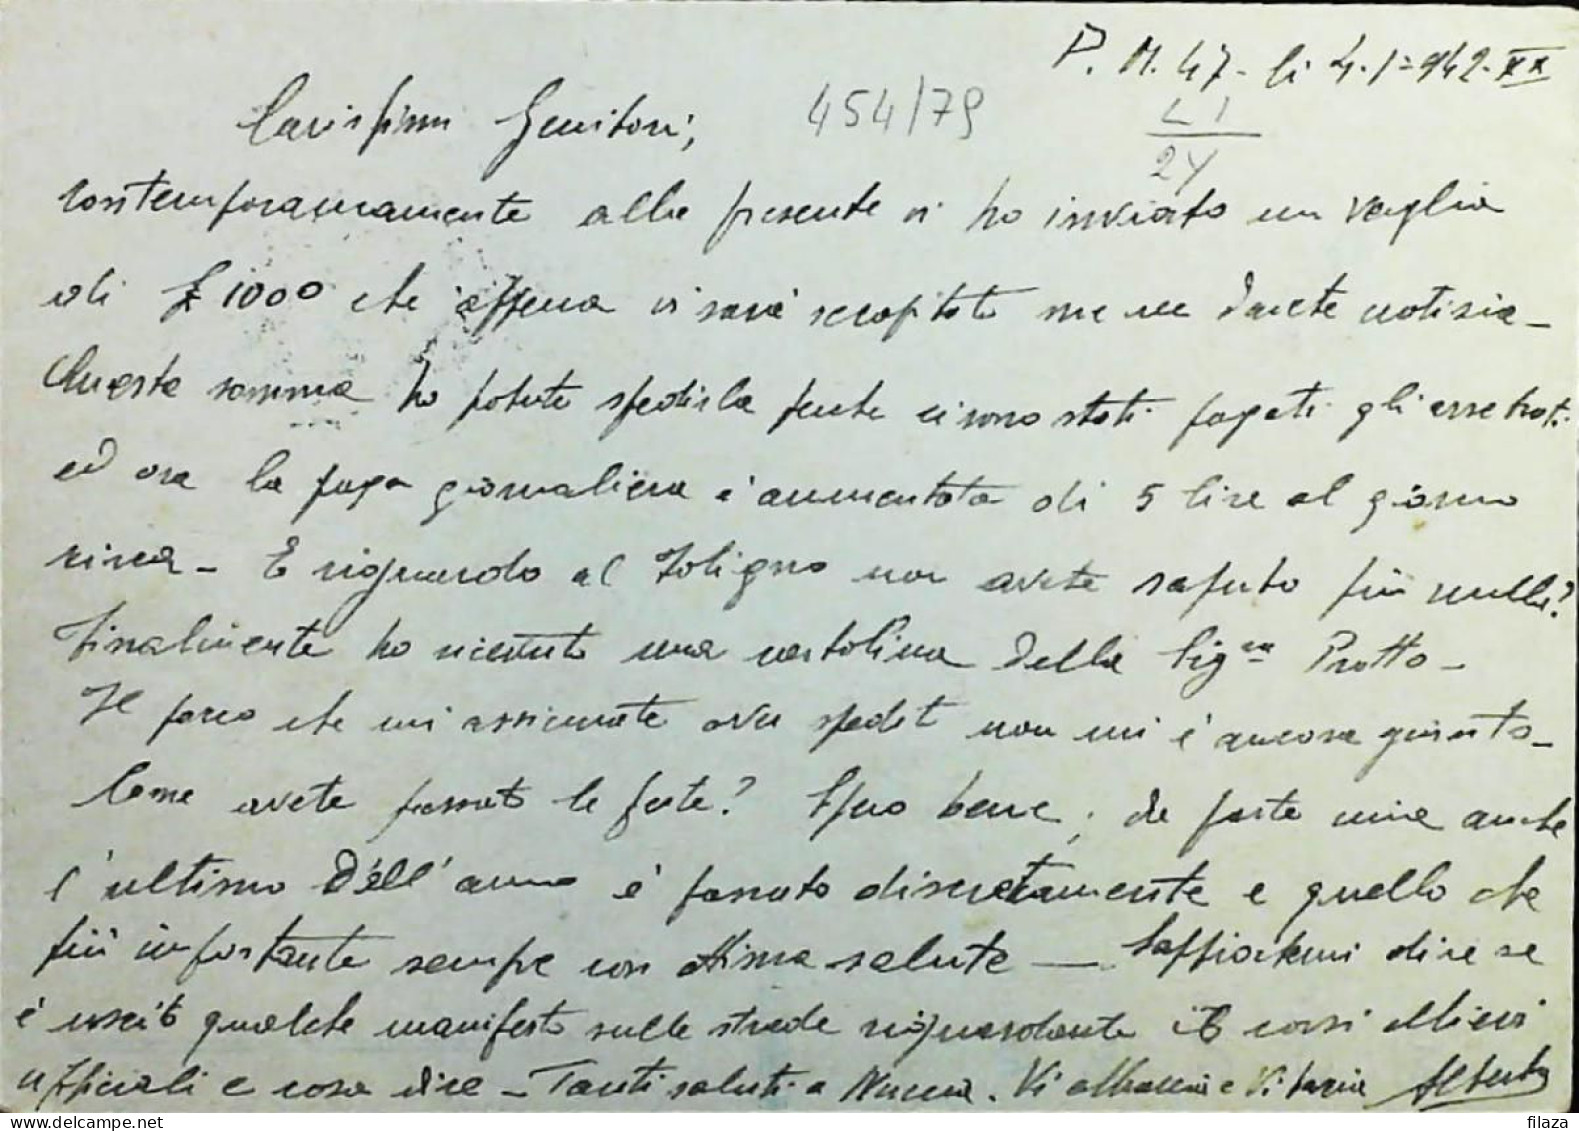 P.M. 47 - li 4-1-942-XX
Carissimi Genitori,
454/79
21
24
contemporaneamente alla presente vi ho inviato un vaglia
di £ 1000 che appena vi sarà recapitato me ne darete notizia -
Questa somma ho potuto spedirla perchè ci sono stati pagati gli arretrati
ed ora la paga giornaliera è aumentata di 5 lire al giorno
circa - E riguardo al Foligno non avete saputo più nulla?
Finalmente ho ricevuto una cartolina della Sig.na Protto -
Il pacco che mi assicurate aver spedito non mi è ancora giunto -
Come avete passato le feste? Spero bene; le feste mie anche
l'ultimo dell'anno è passato discretamente e quello che
più importante sempre con ottima salute - Sappiatemi dire se
è uscito qualche manifesto sulle strade riguardante i corsi allievi
ufficiali e cosa dice - Tanti saluti a Nuccia. Vi abbraccia e Vi bacia Alberto
filaza